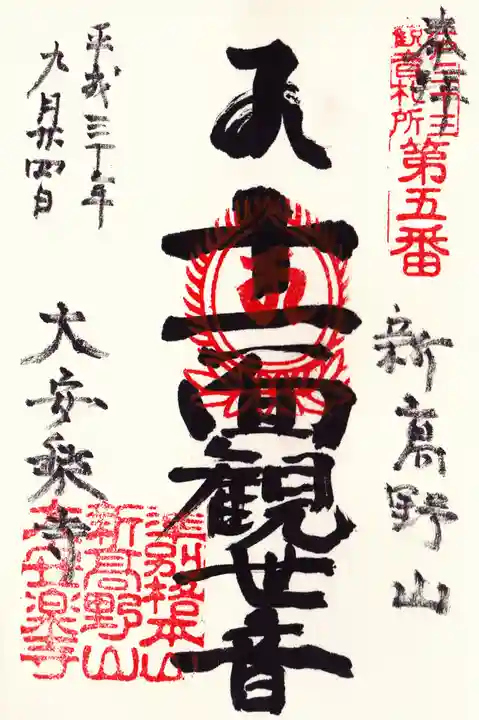 奉拝
観音札所
第五番
新高野山
十一面観世音
平成三十年
九月廿四日
大安楽寺
準別格本山
新高野山
大安楽寺